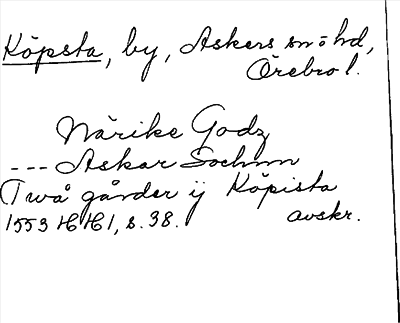 Köpsta, by, Askers sn o hd,
Örebro l.
Närike Godz
--- Askar Sochnn
Twå gårder ij Köpista
1553 HH1, s. 38. avskr.